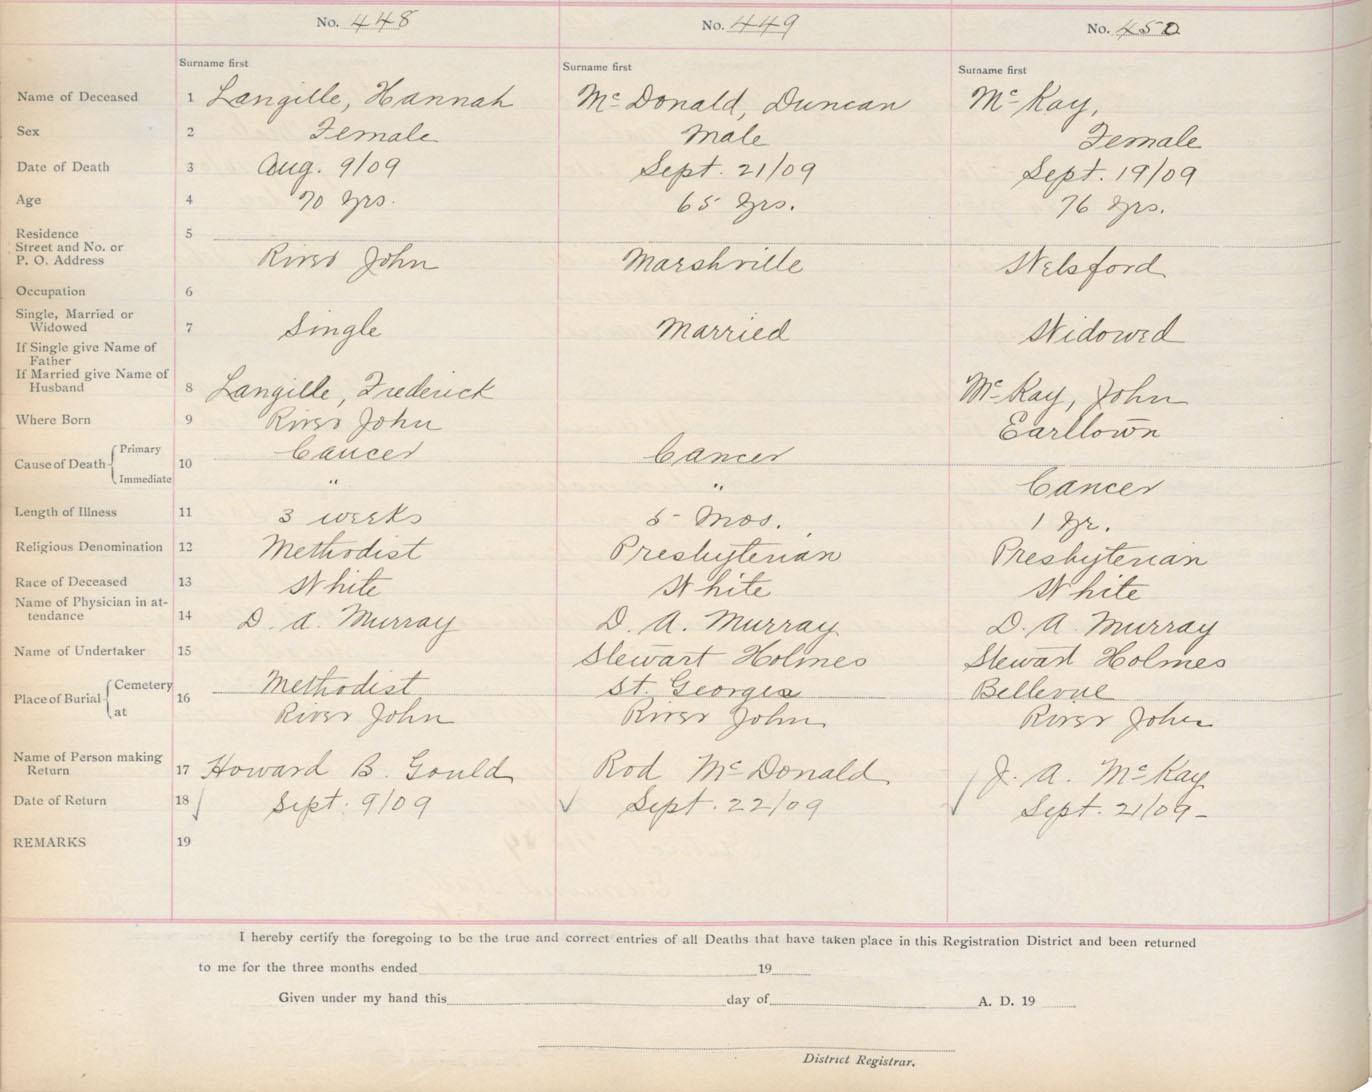 No. 448 No. 449 No. 450
Surname first Surname first Surname first
Name of Deceased 1 Langille, Hannah Mc Donald, Duncan Mc Kay,
Sex 2 Female Male Female
Date of Death 3 Aug. 9/09 Sept. 21/09 Sept. 19/09
Age 4 70 yrs. 65 yrs. 76 yrs.
Residence 5
Street and No. or
P. O. Address River John Marshville Welsford
Occupation 6
Single, Married or
Widowed 7 Single Married Widowed
If Single give Name of
Father
If Married give Name of
Husband 8 Langille, Frederick Mc Kay, John
Where Born 9 River John Earltown
Cause of Death Primary 10 Cancer Cancer
Immediate " " Cancer
Length of Illness 11 3 weeks 5 Mos. 1 yr.
Religious Denomination 12 Methodist Presbyterian Presbyterian
Race of Deceased 13 White White White
Name of Physician in at-
tendance 14 D. A. Murray D. A. Murray D. A. Murray
Name of Undertaker 15 Stewart Holmes Stewart Holmes
Place of Burial Cemetery 16 Methodist St. Georges Bellevue
at River John River John River John
Name of Person making
Return 17 Howard B. Gould Rod McDonald J. A. McKay
Date of Return 18 Sept. 9/09 Sept. 22/09 Sept. 21/09-
REMARKS 19
I hereby certify the foregoing to be the true and correct entries of all Deaths that have taken place in this Registration District and been returned
to me for the three months ended 19
Given under my hand this day of A. D. 19
District Registrar.